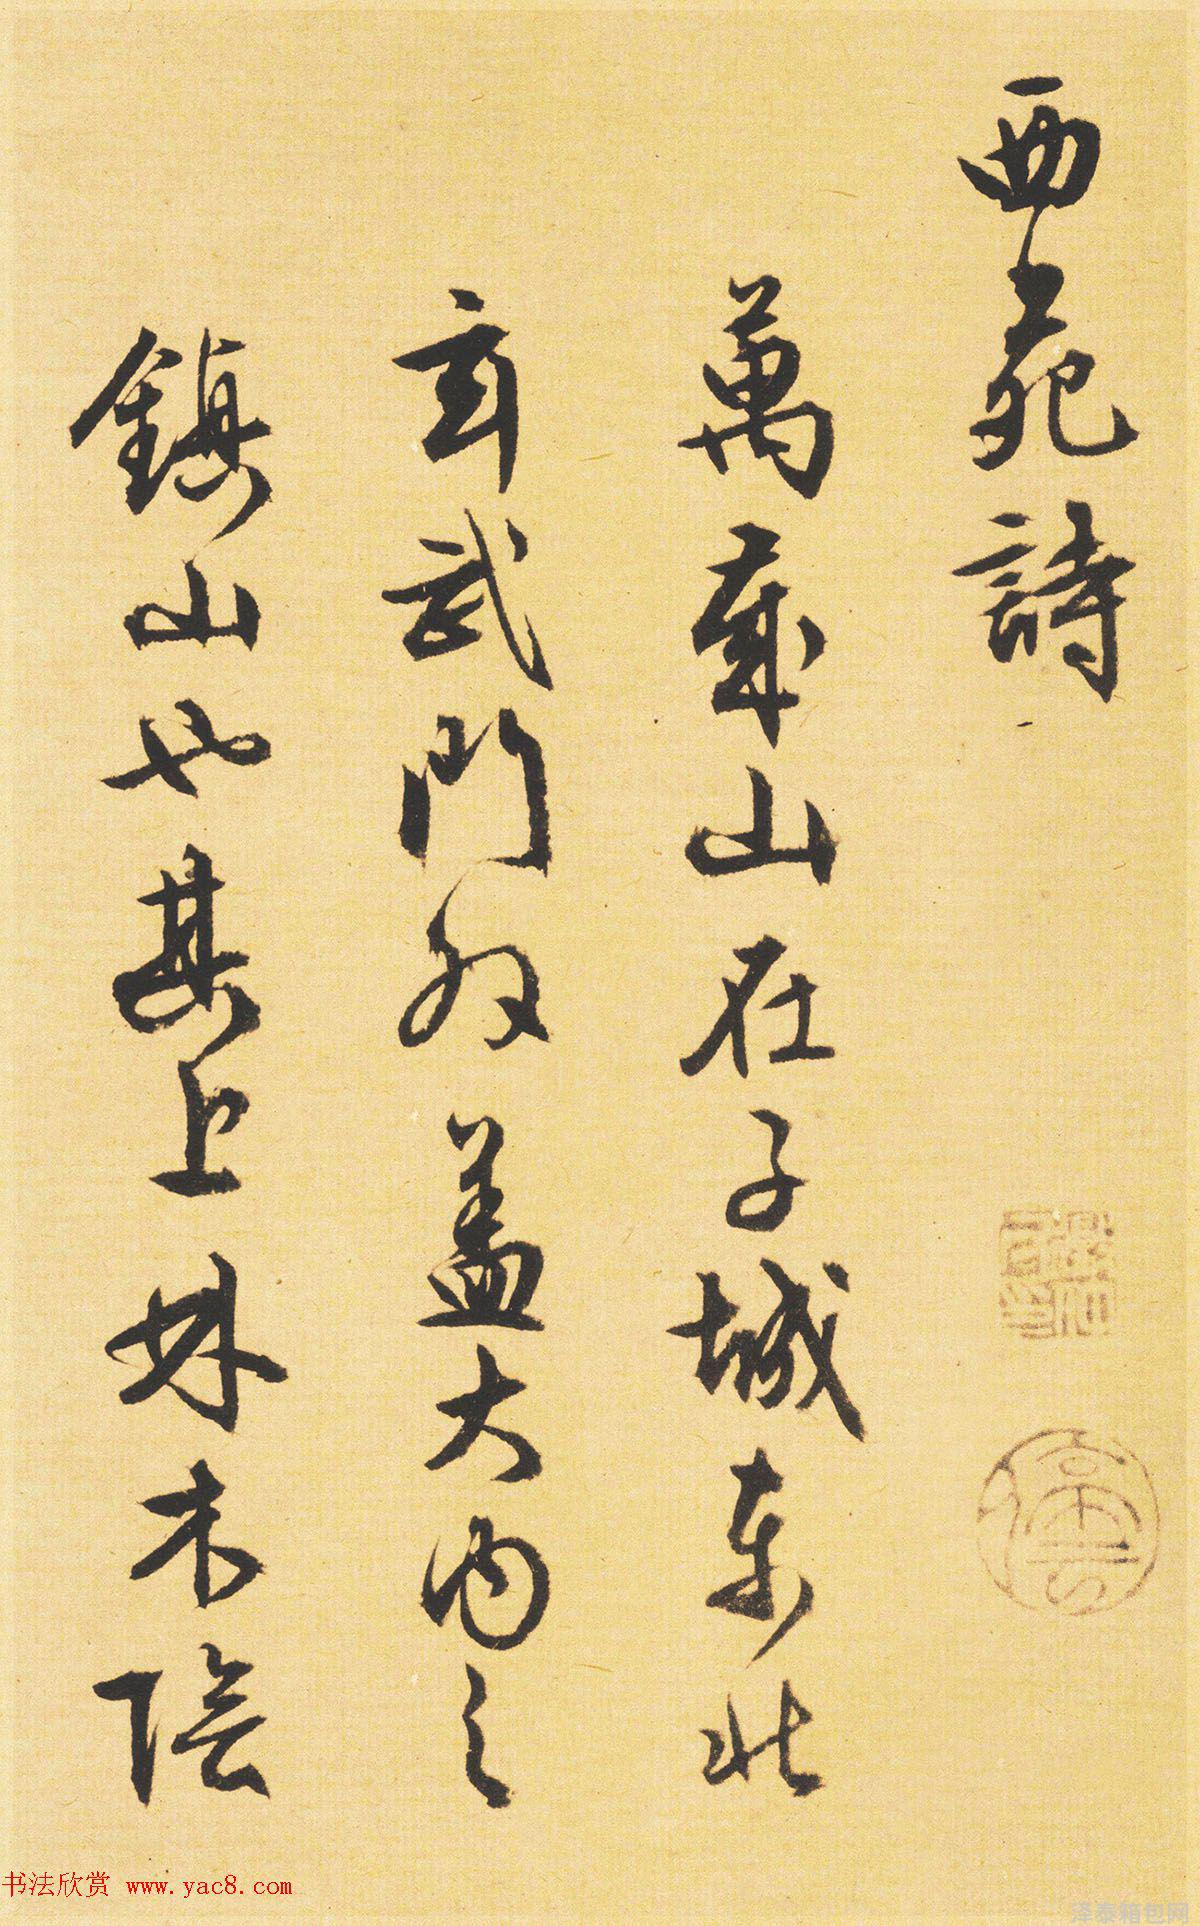 西苑詩
萬歲山在子城東北
玄武門外蓋大內之
鎮山也其上林木陰
书法欣赏 www.yac8.com
泽泰箱包网